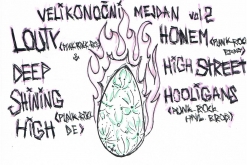 VELIKONOČNÍ MEJDAN vol 2
LOUTY
DEEP
SHINING
HIGH
(PUNK ROCK
DE)
HONEM
(PUNK-ROCK
HIGH STREET
HOOLIGANS
(PUNK ROCK
HAVL. BROD)